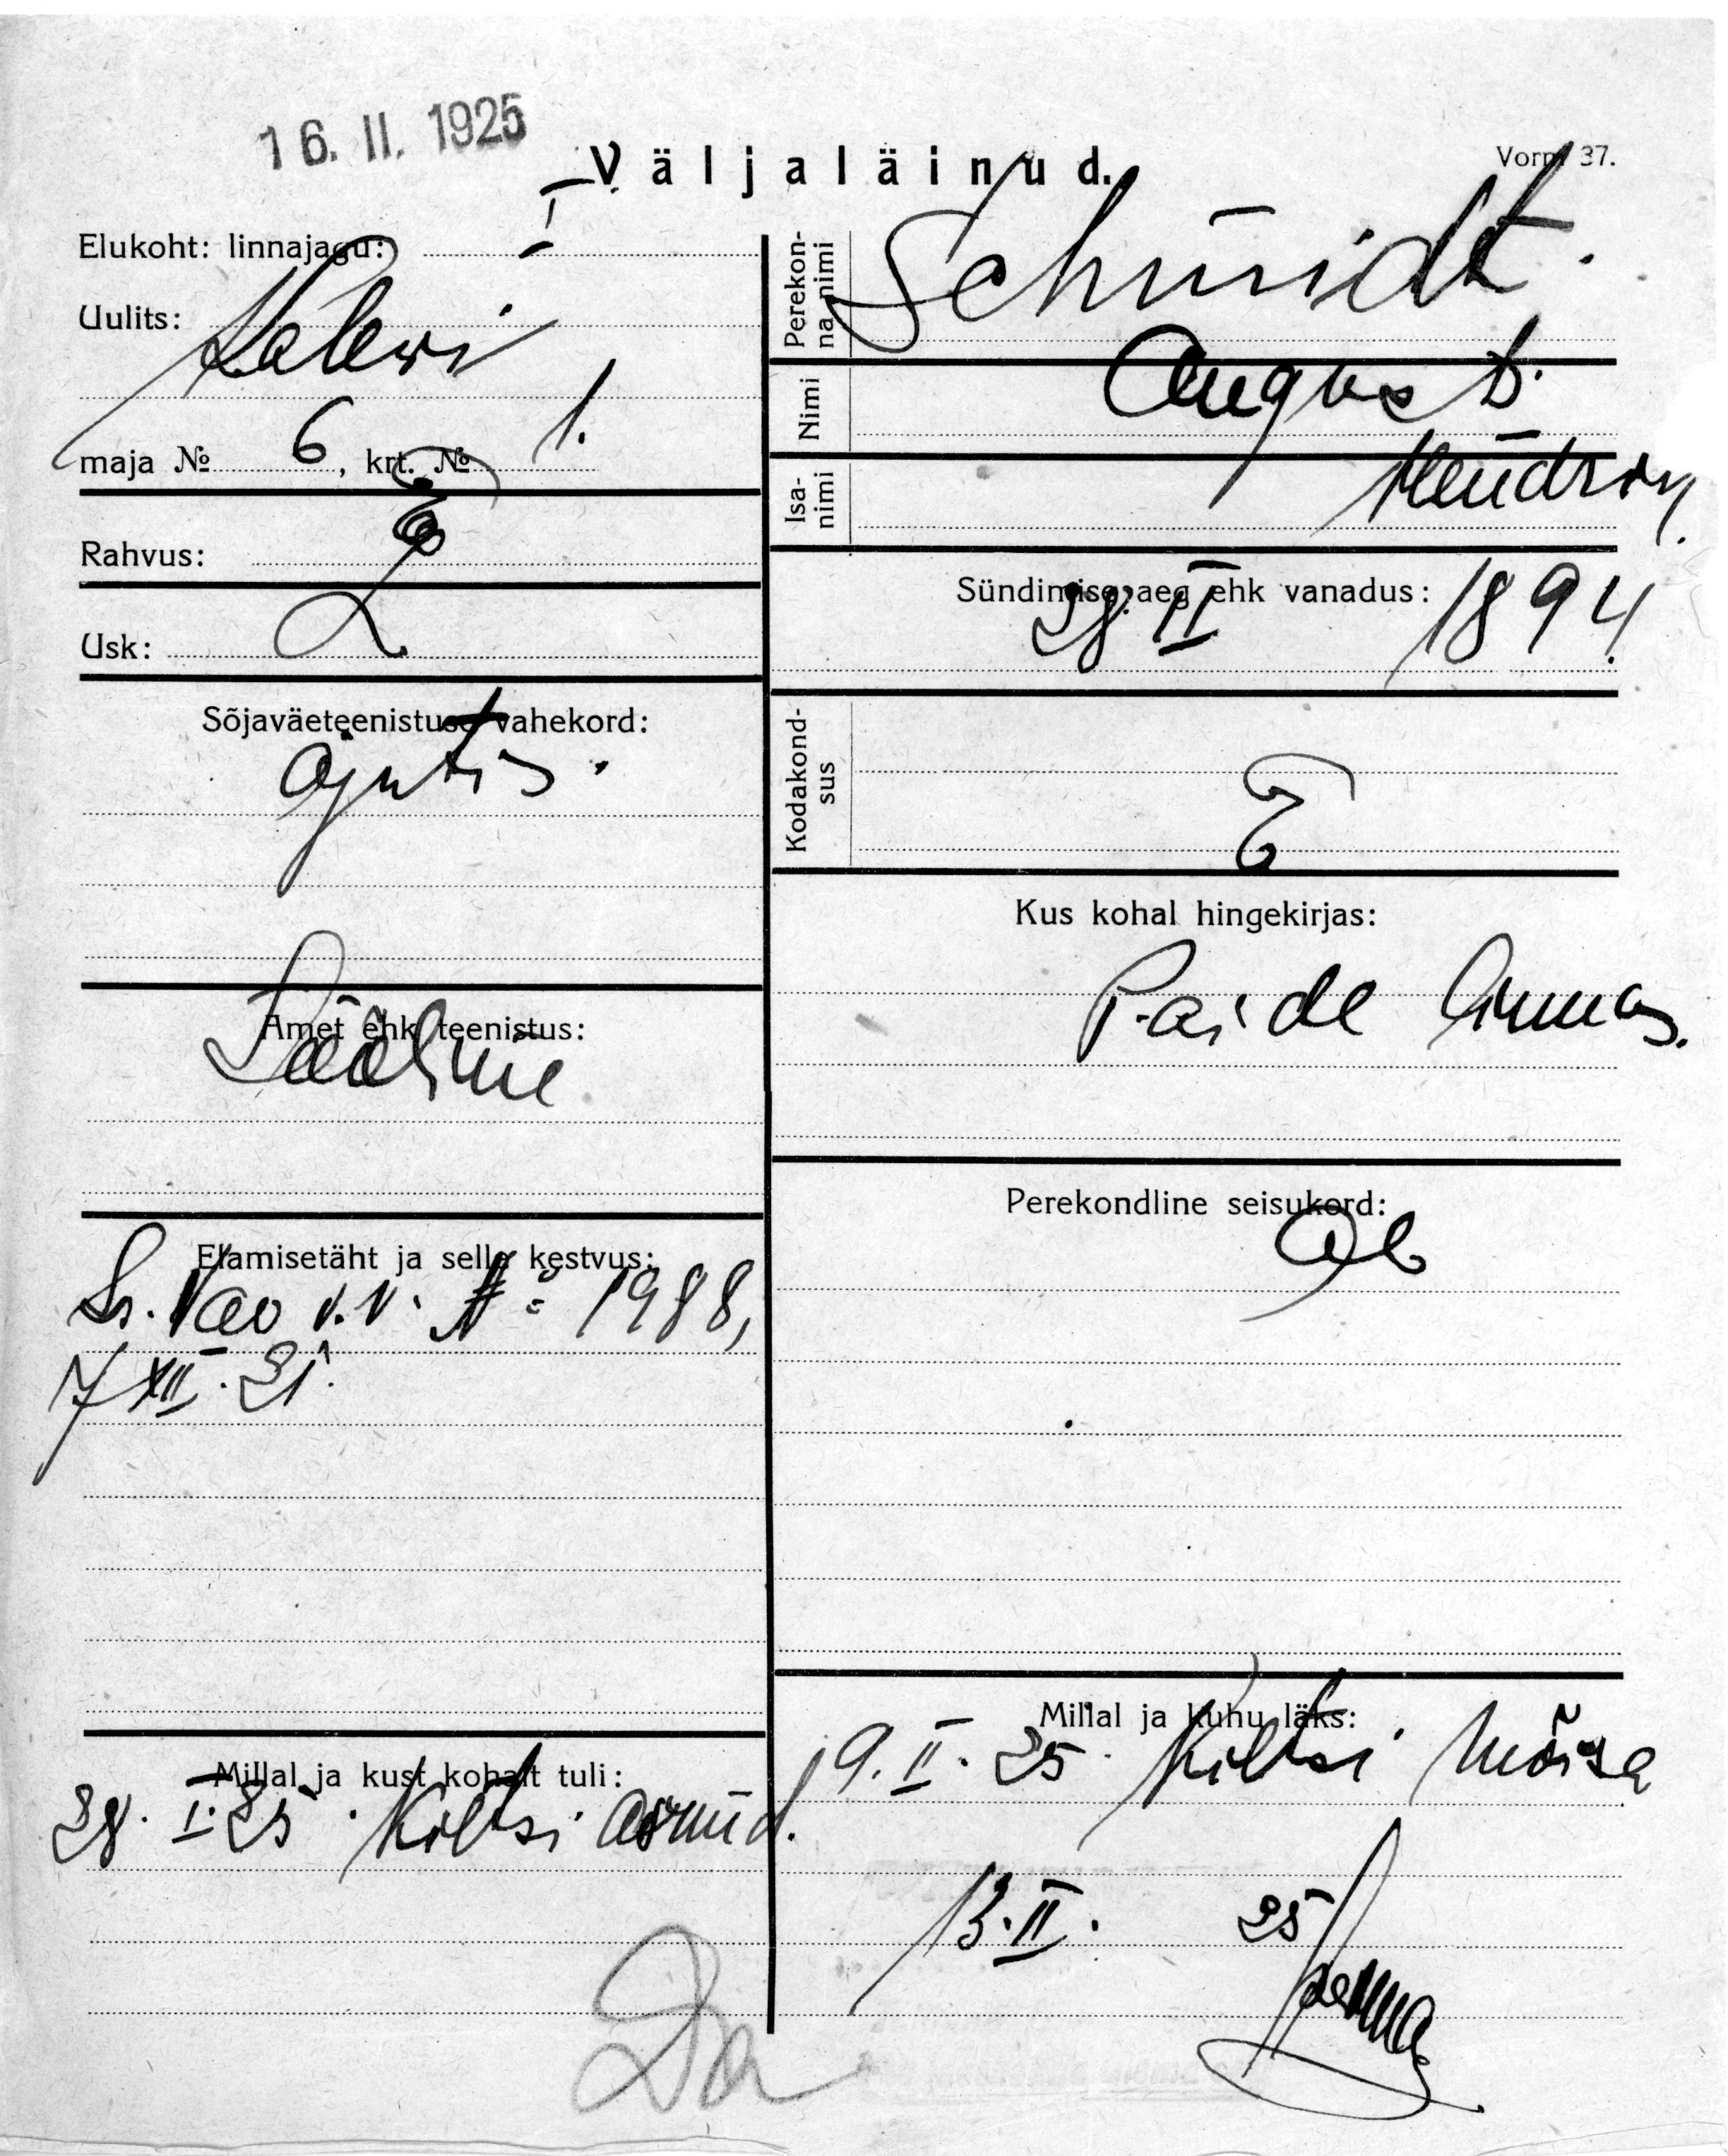 16. II. 1925
Väljaläinud.
Vorm 37.
Elukoht: linnajagu: I
Uulits: Kalewi
maja № 6, krt. № 1.
Rahvus: E
Usk: L
Sõjaväeteenistuse vahekord:
Ajutis.
Amet ehk teenistus:
Tööline
Elamisetäht ja selle kestvus:
Vao v.v. № 1988,
7 XII. 21.
Millal ja kust kohalt tuli:
28. I. 25. Kiltsi
Perekonna nimi
Schmidt.
Nimi
August.
Isanimi
Hendriku.
Sündimise aeg ehk vanadus:
28. II 1894.
Kodakondsus
E
Kus kohal hingekirjas:
Paide linnas.
Perekondline seisukord:
Ab
Millal ja kuhu läks:
9. II. 25. Kiltsi mõisa
13. II. 25